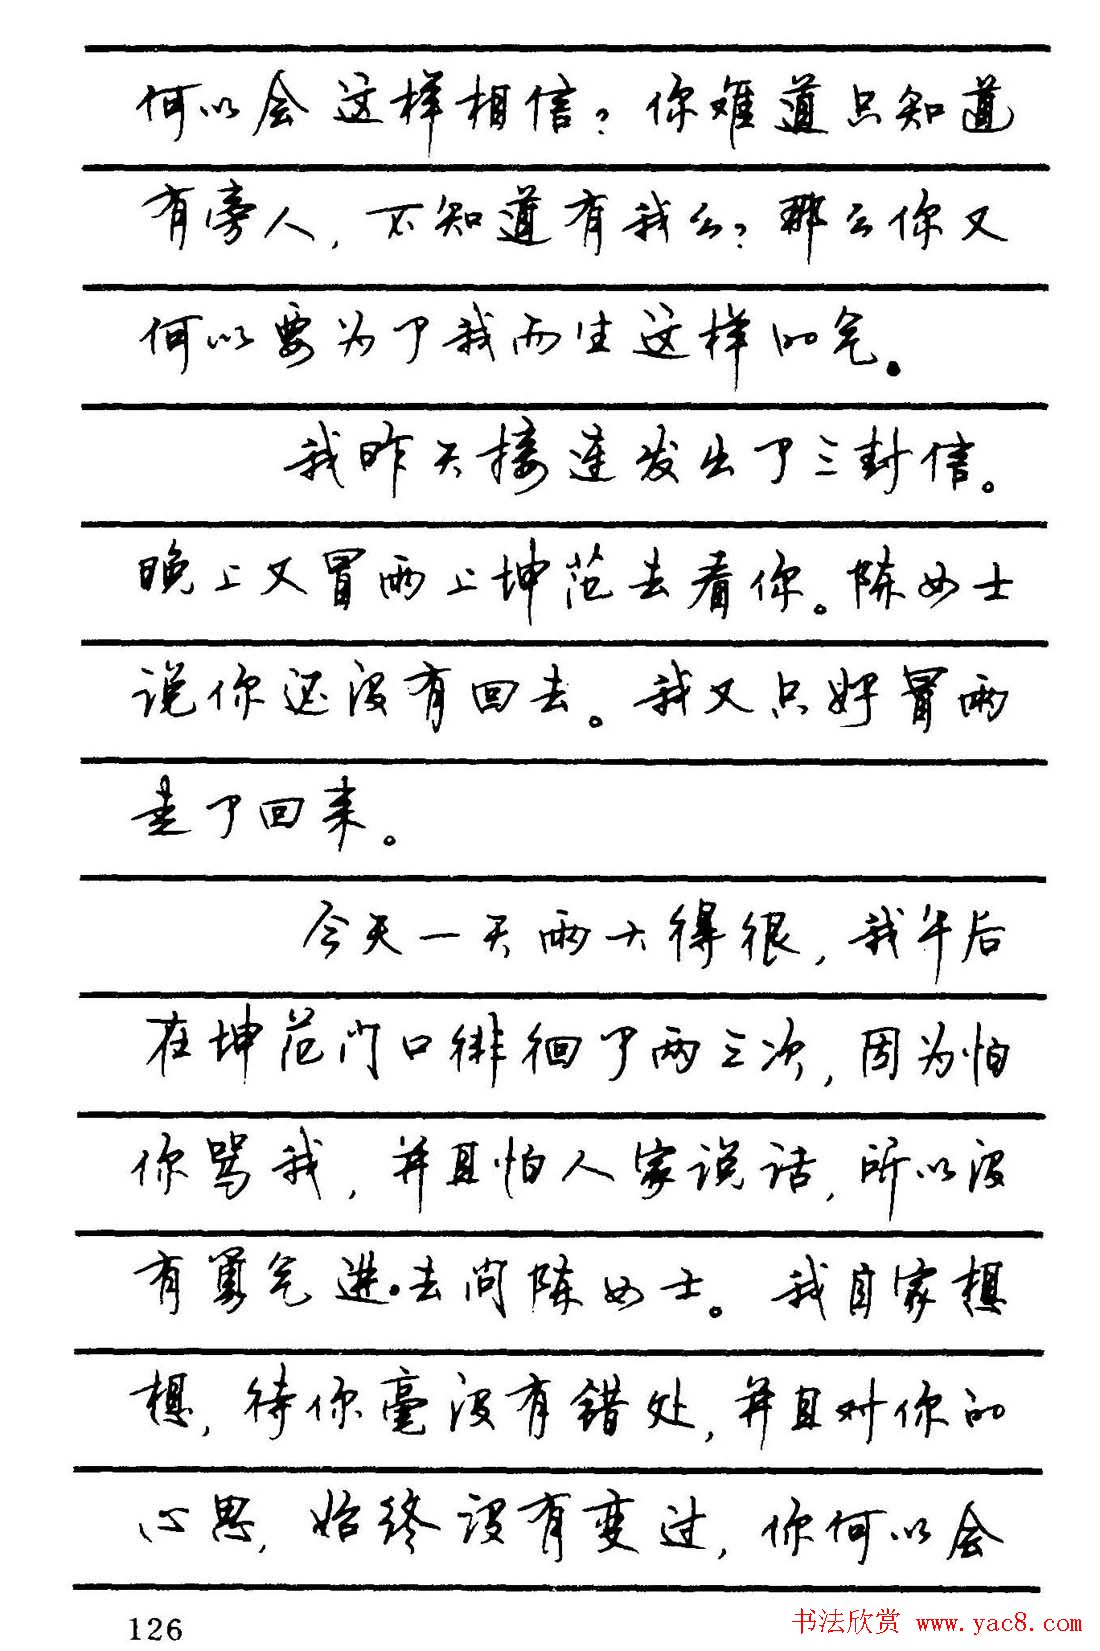 何以会这样相信？你难道只知道
有旁人，不知道有我么？那么你又
何以要为了我而生这样的气。
我昨天接连发出了三封信。
晚上又冒雨上坤范去看你。陈女士
说你还没有回去。我又只好冒雨
走了回来。
今天一天雨大得很，我午后
在坤范门口徘徊了两三次，因为怕
你骂我，并且怕人家说话，所以没
有勇气进去问陈女士。我自家想
想，待你毫没有错处，并且对你的
心思，始终没有变过，你何以会
126
书法欣赏 www.yac8.com